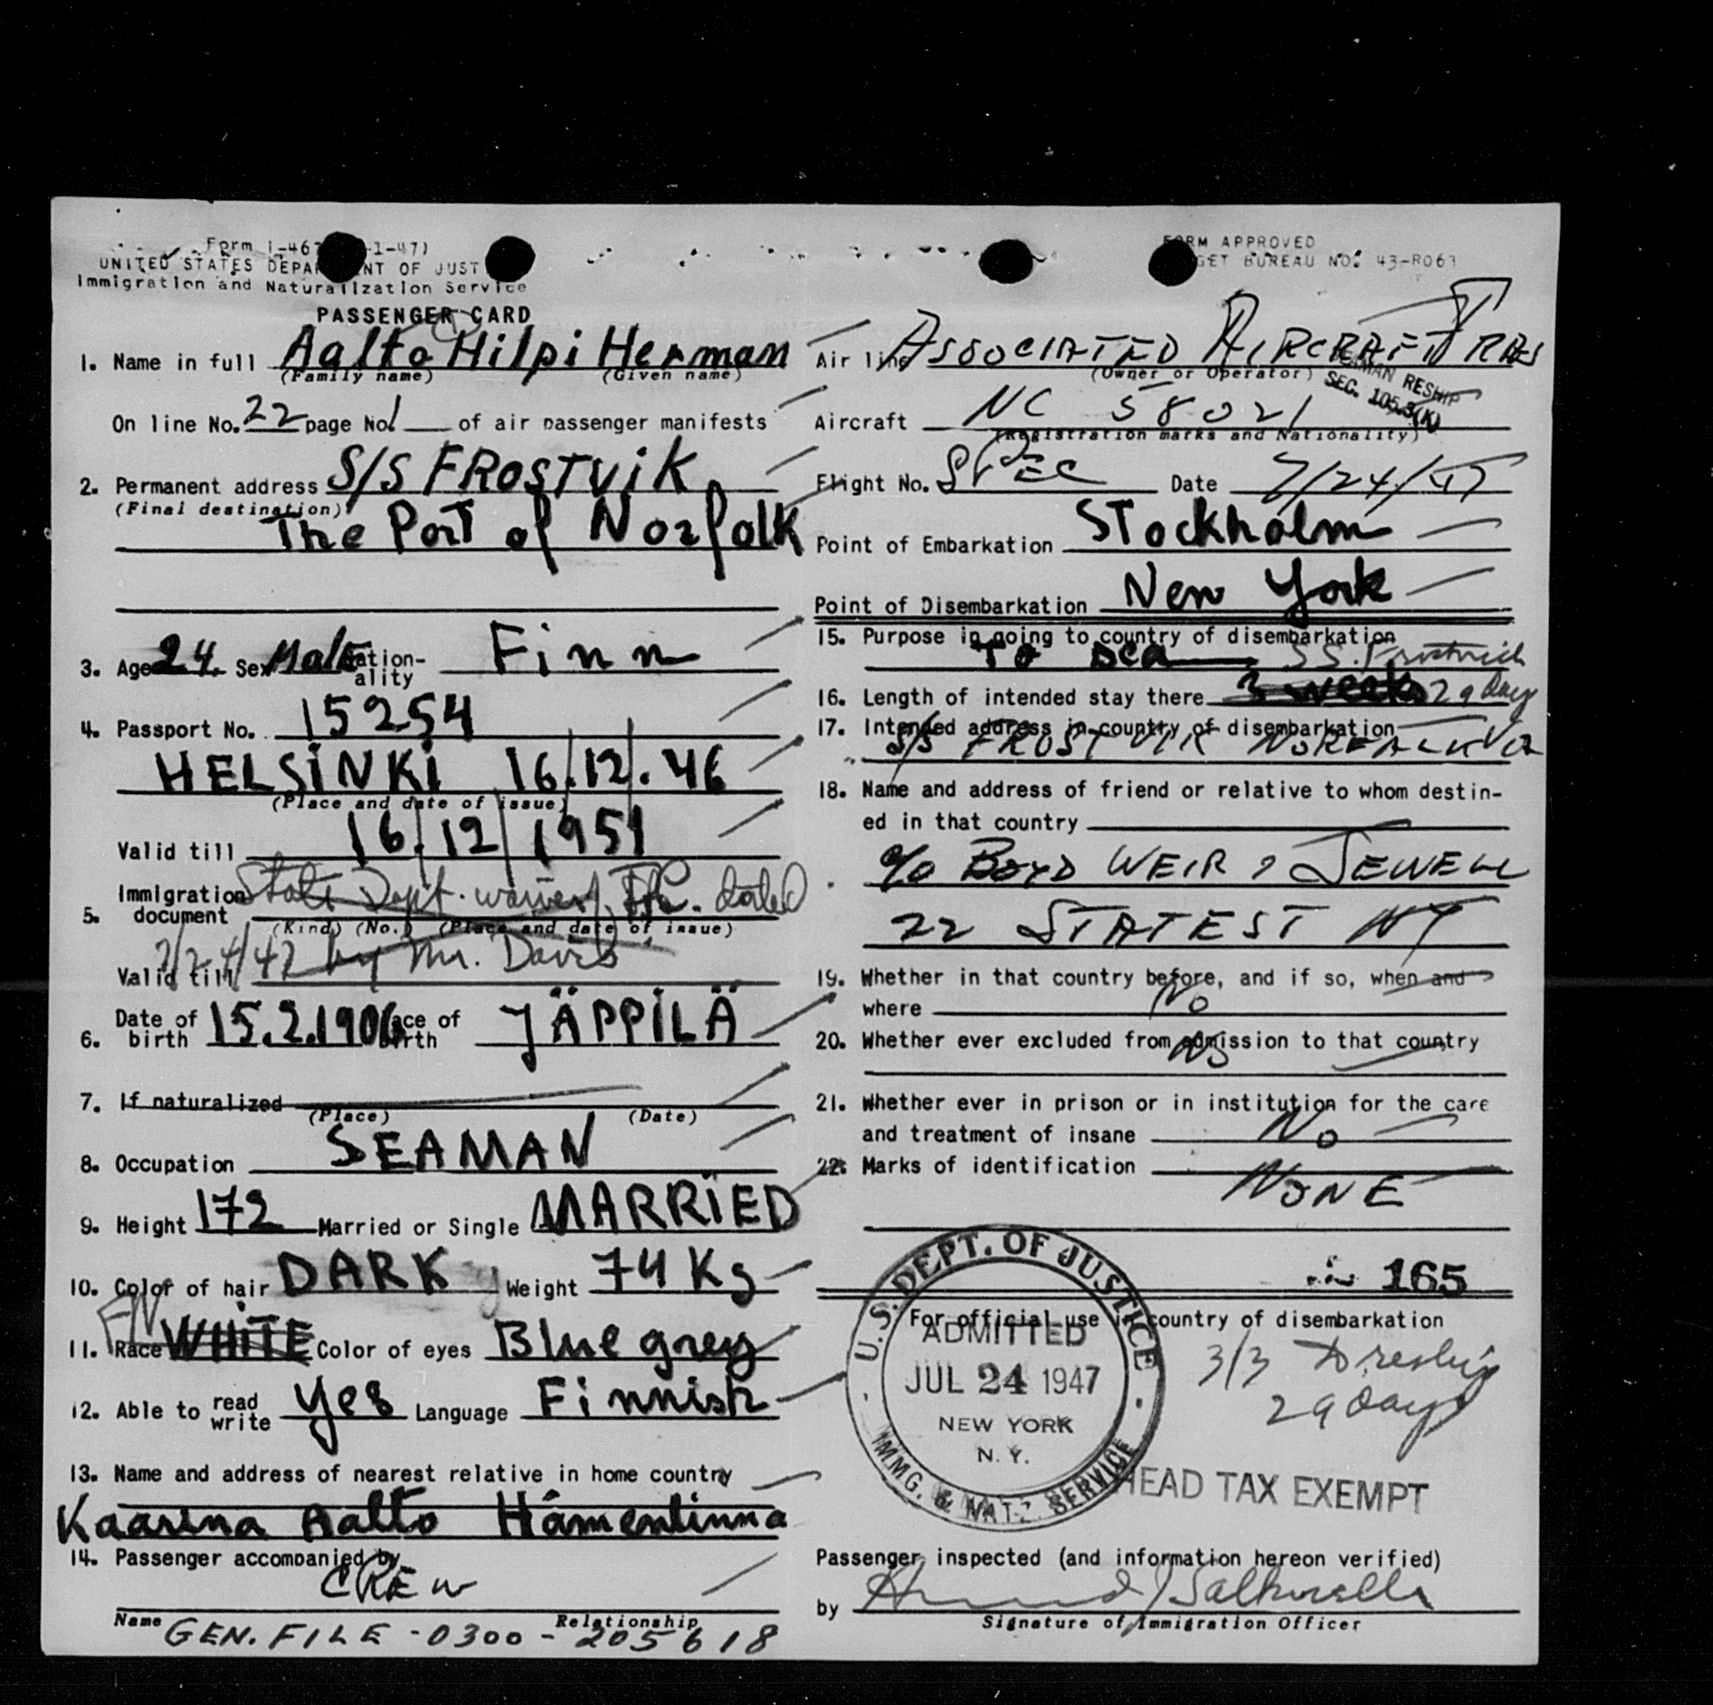 Form I-467 -1-47)
UNITED STATES DEPA NT OF JUST
Immigration and Naturalization Service
PASSENGER CARD
FORM APPROVED
GET BUREAU NO. 43-R063
1. Name in full Aalto Hilpi Herman
(Family name) (Given name)
On line No. 22 page No. 1 of air passenger manifests
2. Permanent address S/S FROSTViK
(Final destination)
The Port of Norfolk
3. Age 24. Sex Male Nation-
ality Finn
4. Passport No. 15254
HELSiNKi 16/12.46
(Place and date of issue)
Valid till 16/12/1951
5. Immigration
document State Dept. waiver dated
(Kind) (No.) (Place and date of issue)
7/24/47 by Mr. Davis
Valid till
6. Date of
birth 15.2.1906 Place of
birth JÄPPiLÄ
7. If naturalized
(Place) (Date)
8. Occupation SEAMAN
9. Height 172 Married or Single MARRiED
10. Color of hair DARK Weight 74 Kg
FIN
11. Race WHiTE Color of eyes Blue grey
12. Able to read
write yes Language Finnish
13. Name and address of nearest relative in home country
Kaarina Aalto Hämenlinna
14. Passenger accompanied by
CREW
Name Relationship
GEN. FILE - 0300 - 205618
Air line ASSOCIATED AIRCRAFT
(Owner or Operator)
SEAMAN RESHIP
SEC. 105.3(K)
Aircraft NC 58021
(Registration marks and Nationality)
Flight No. SPEC Date 7/24/47
Point of Embarkation STockholm
Point of Disembarkation New York
15. Purpose in going to country of disembarkation
To Sea S.S. Frostvich
16. Length of intended stay there 3 weeks 29 days
17. Intended address in country of disembarkation
S/S FROSTVIK NORFALK Va
18. Name and address of friend or relative to whom destin-
ed in that country
c/o BOYD WEIR & SEWELL
22 STATE ST NY
19. Whether in that country before, and if so, when and
where No
20. Whether ever excluded from admission to that country
No
21. Whether ever in prison or in institution for the care
and treatment of insane No
22. Marks of identification
NONE
165
For official use in country of disembarkation
U.S. DEPT. OF JUSTICE
ADMITTED
JUL 24 1947
NEW YORK
N.Y.
IMMG. & NATZ. SERVICE
3/3 to reship
29 days
HEAD TAX EXEMPT
Passenger inspected (and information hereon verified)
by
Signature of Immigration Officer